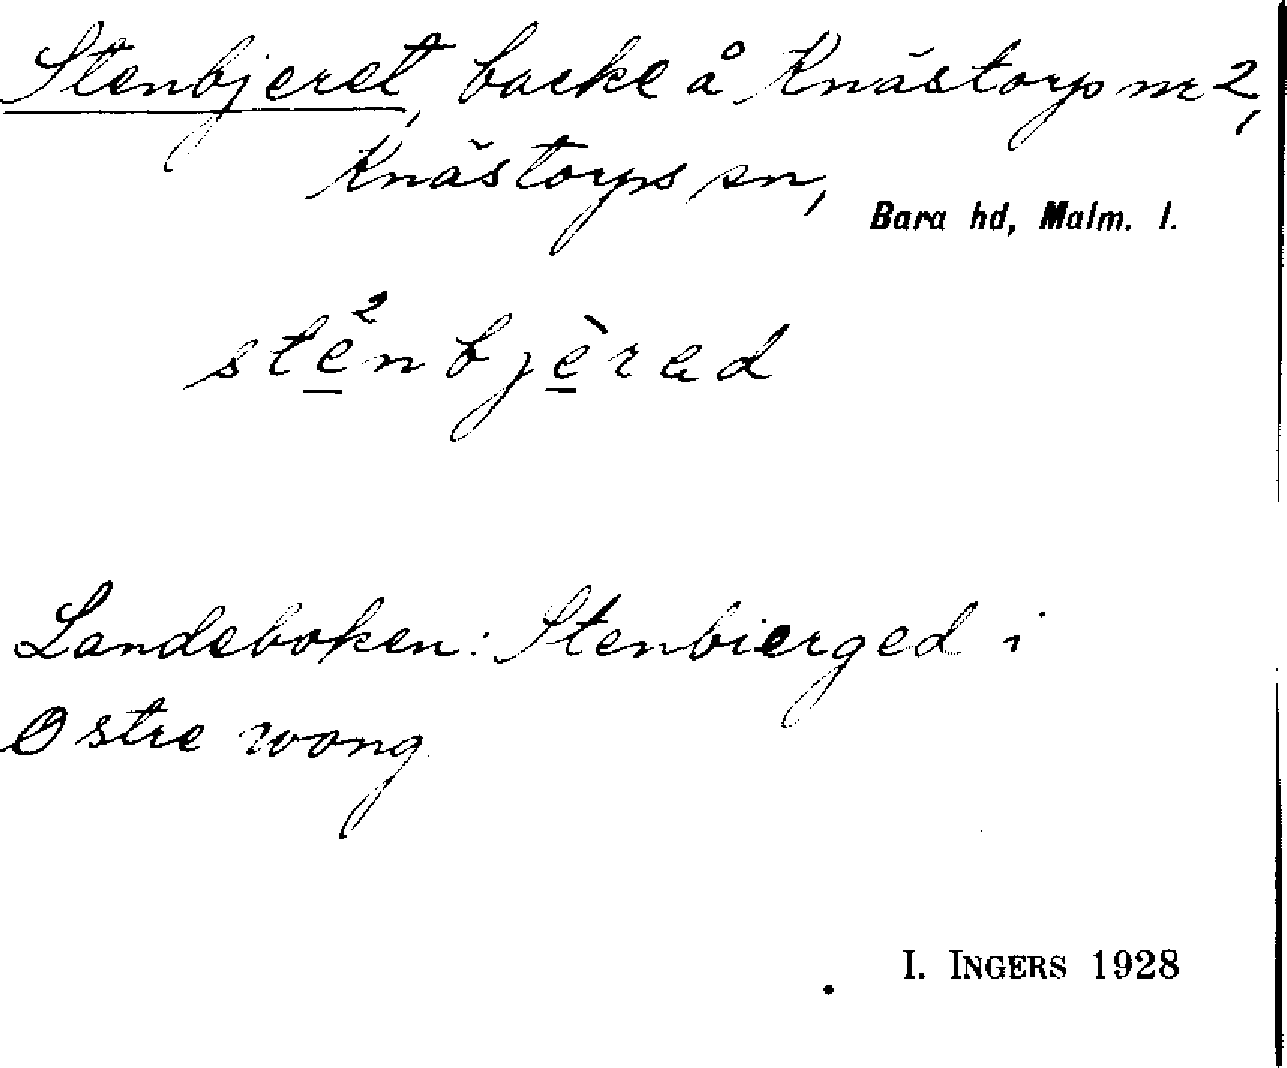 Stenbjeret, backe å Knästorps nr 2,
Knästorps sn,
Bara hd, Malm. l.
ste̲²nbjè̲rəd
Landeboken: Stenbierged i
Østre wong
I. INGERS 1928